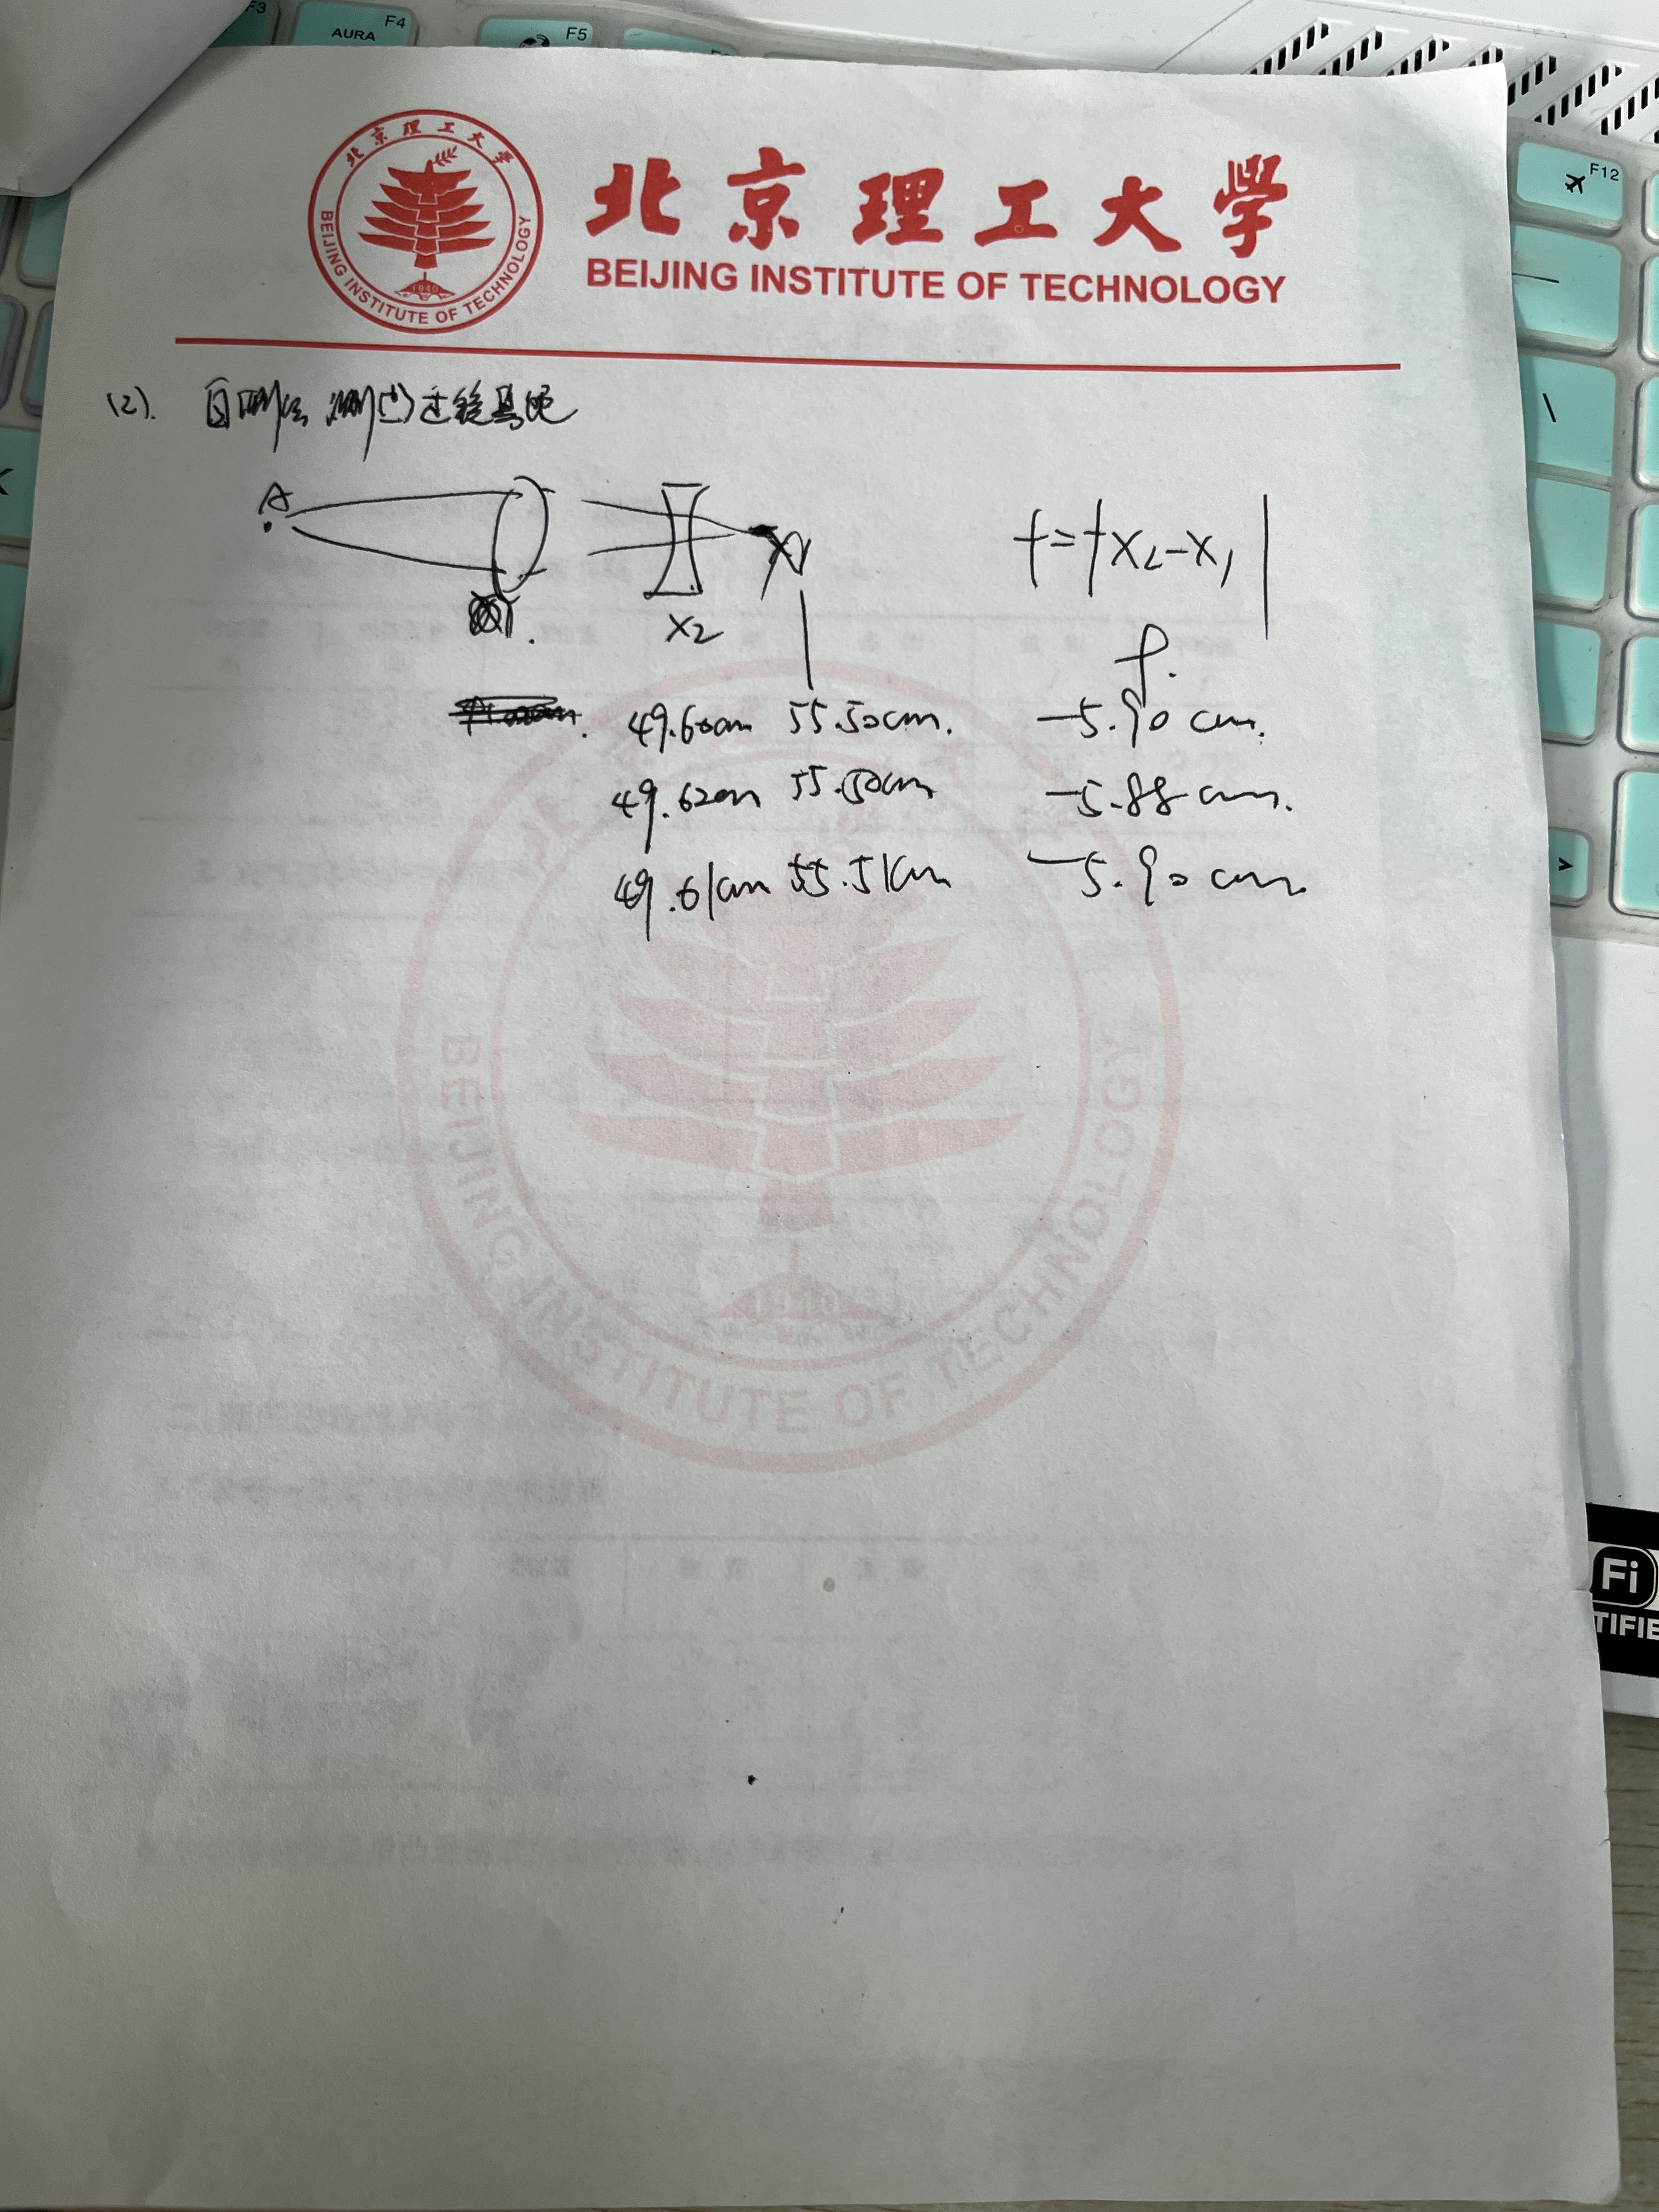 F3
F4
AURA
F5
F12
北京理工大学
BEIJING INSTITUTE OF TECHNOLOGY
1940
北京理工大学
BEIJING INSTITUTE OF TECHNOLOGY
(2).
A
X2
f=-|X2-X1|
f.
49.60cm 55.50cm. -5.90 cm.
49.62cm 55.50cm -5.88 cm.
49.61cm 55.51cm -5.90 cm.
BEIJING INSTITUTE OF TECHNOLOGY
1940
Fi
TIFIE